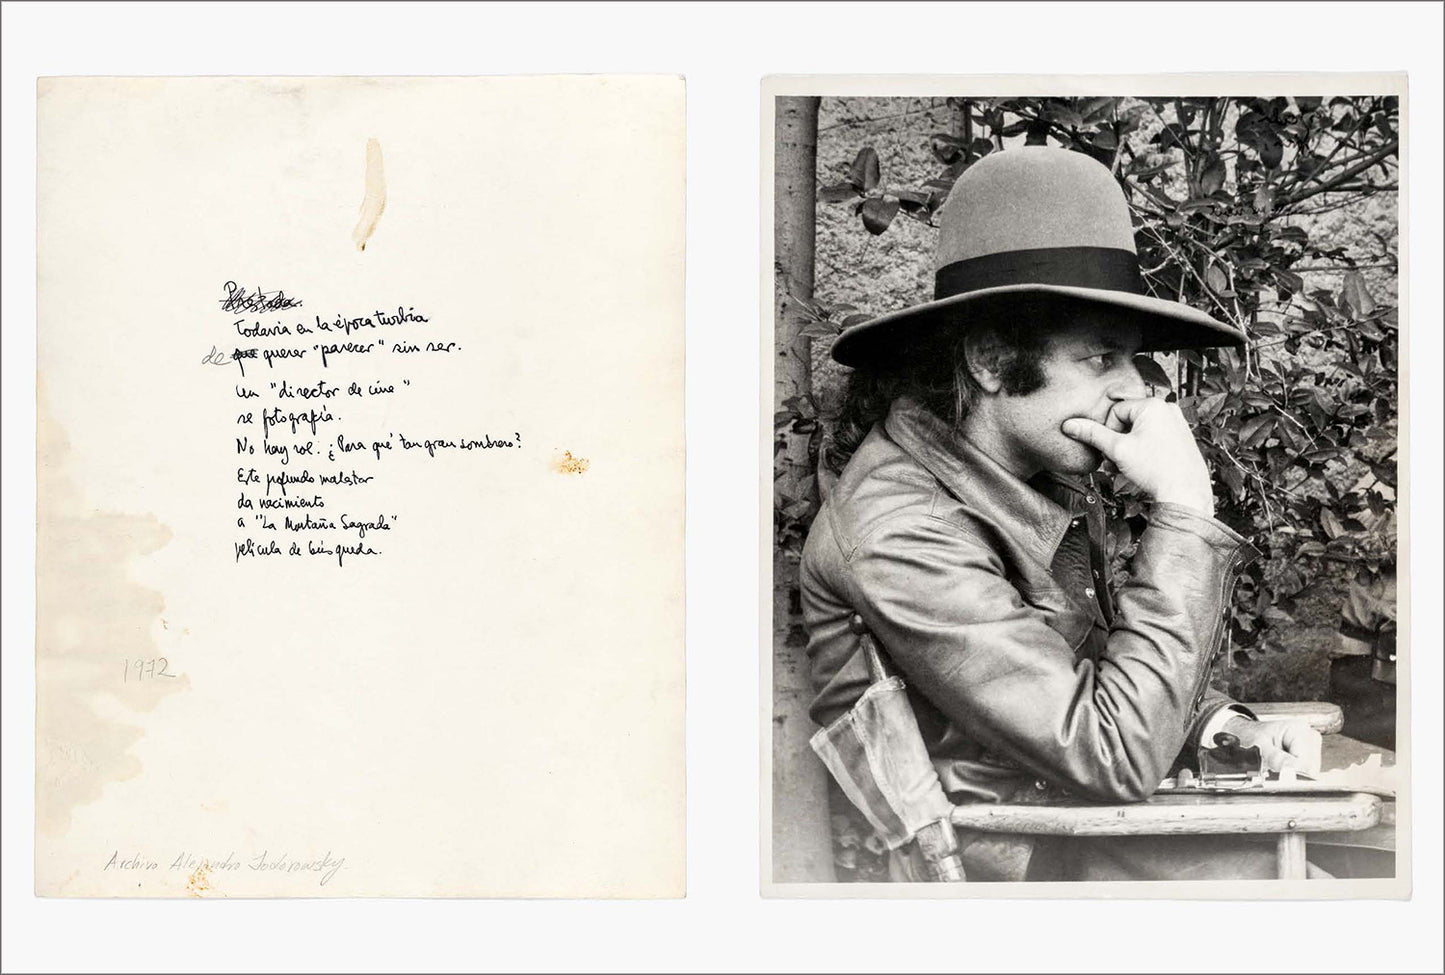 Todavía en la época turbia
de querer "parecer" sin ser.
Un "director de cine"
se fotografía.
No hay rol. ¿Para qué tan gran sombrero?
Este profundo malestar
da nacimiento
a "La Montaña Sagrada"
película de búsqueda.
1972
Archivo Alejandro Jodorowsky.